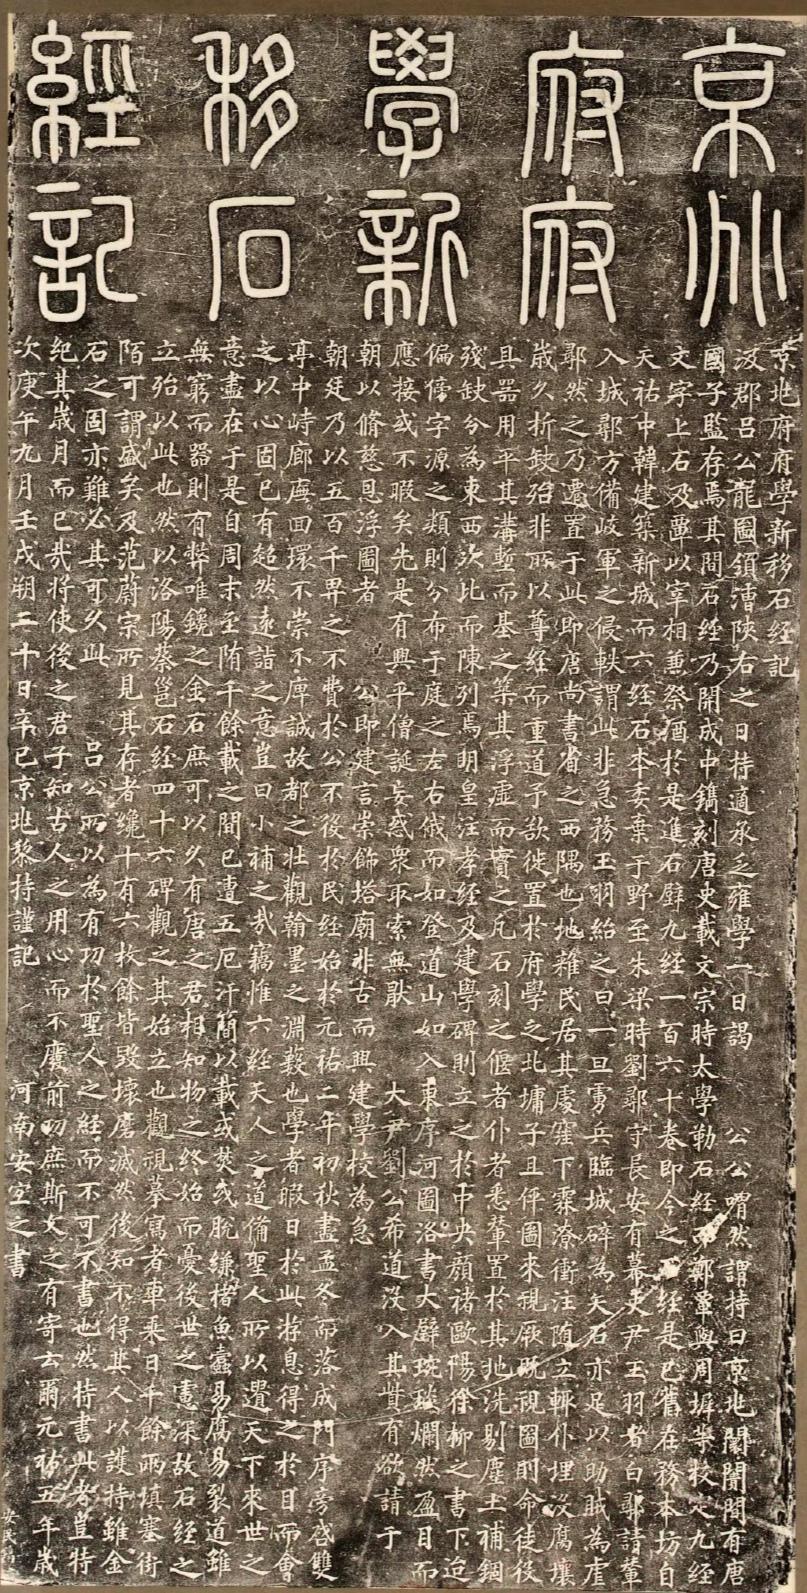 京兆
府府
學新
移石
經記
京兆府府學新移石經記
汲郡呂公龍圖領漕陝右之日持適承乏雍學一日謁公公喟然謂持曰京兆闤闠間有唐
國子監存焉其間石經乃開成中鐫刻唐史載文宗時太學勒石經而鄭覃與周墀等校定九經
文字上石及覃以宰相兼祭酒於是進石壁九經一百六十卷即今之石經是已舊在務本坊自
天祐中韓建築新城而六經石本委棄于野至朱梁時劉鄩守長安有幕吏尹玉羽者白鄩請輦
入城鄩方備岐軍之侵軼謂此非急務玉羽紿之曰一旦虜兵臨城碎為矢石亦足以助賊為虐
鄩然之乃遷置于此即唐尚書省之西隅也地雜民居其處窪下霖潦衝注随立輒仆埋没腐壤
歲久折缺殆非所以尊經而重道予欲徙置於府學之北墉子且伻圖來視厥既視圖則命徒役
具器用平其溝塹而基之築其浮虛而實之凡石刻之偃者仆者悉輦置於其地洗剔塵土補錮
殘缺分為東西次比而陳列焉明皇注孝經及建學碑則立之於中央顏褚歐陽徐柳之書下迨
偏傍字源之類則分布于庭之左右俄而如登道山如入東序河圖洛書大璧琬琰爛然盈目而
應接或不暇矣先是有興平僧誕妄惑眾取索無猒大尹劉公希道没入其貲有欲請于
朝以脩慈恩浮圖者公即建言崇飾塔廟非古而興建學校為急
朝廷乃以五百千畀之不費於公不役於民經始於元祐二年初秋盡孟冬而落成門序旁啓雙
亭中峙廊廡回環不崇不庳誠故都之壯觀翰墨之淵藪也學者暇日於此游息得之於目而會
之以心固已有超然遠詣之意豈曰小補之哉竊惟六經天人之道備聖人所以遺天下來世之
意盡在于是自周末至隋千餘載之間已遭五厄汗簡以載或焚或脫縑楮魚蠹易腐易裂道雖
無窮而器則有弊唯鑱之金石庶可以久有唐之君相知物之終始而憂後世之慮深故石經之
立殆以此也然以洛陽蔡邕石經四十六碑觀之其始立也觀視摹寫者車乘日千餘兩填塞街
陌可謂盛矣及范蔚宗所見其存者纔十有六枚餘皆毀壞磨滅然後知不得其人以護持雖金
石之固亦難必其可久此呂公所以為有功於聖人之經而不可不書也然持書此者豈特
紀其歲月而已哉將使後之君子知古人之用心而不廢前功庶斯文之有寄云爾元祐五年歲
次庚午九月壬戌朔二十日辛巳京兆黎持謹記河南安宜之書
安民